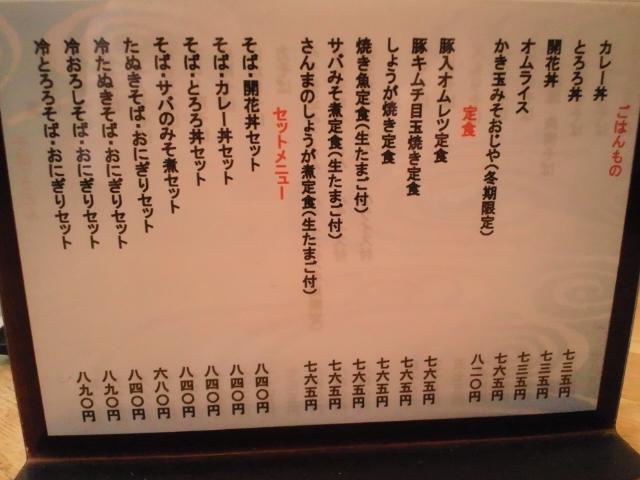 ごはんもの
カレー丼 七三五円
とろろ丼 七三五円
開花丼 七三五円
オムライス 七六五円
かき玉みそおじや(冬期限定) 八二〇円
定食
豚入オムレツ定食 七六五円
豚キムチ目玉焼き定食 七六五円
しょうが焼き定食 七六五円
焼き魚定食(生たまご付) 七六五円
サバみそ煮定食(生たまご付) 七六五円
さんまのしょうが煮定食(生たまご付) 七六五円
セットメニュー
そば・開花丼セット 八四〇円
そば・カレー丼セット 八四〇円
そば・とろろ丼セット 八四〇円
そば・サバのみそ煮セット 八四〇円
たぬきそば・おにぎりセット 六八〇円
冷たぬきそば・おにぎりセット 八四〇円
冷おろしそば・おにぎりセット 八九〇円
冷とろろそば・おにぎりセット 八九〇円